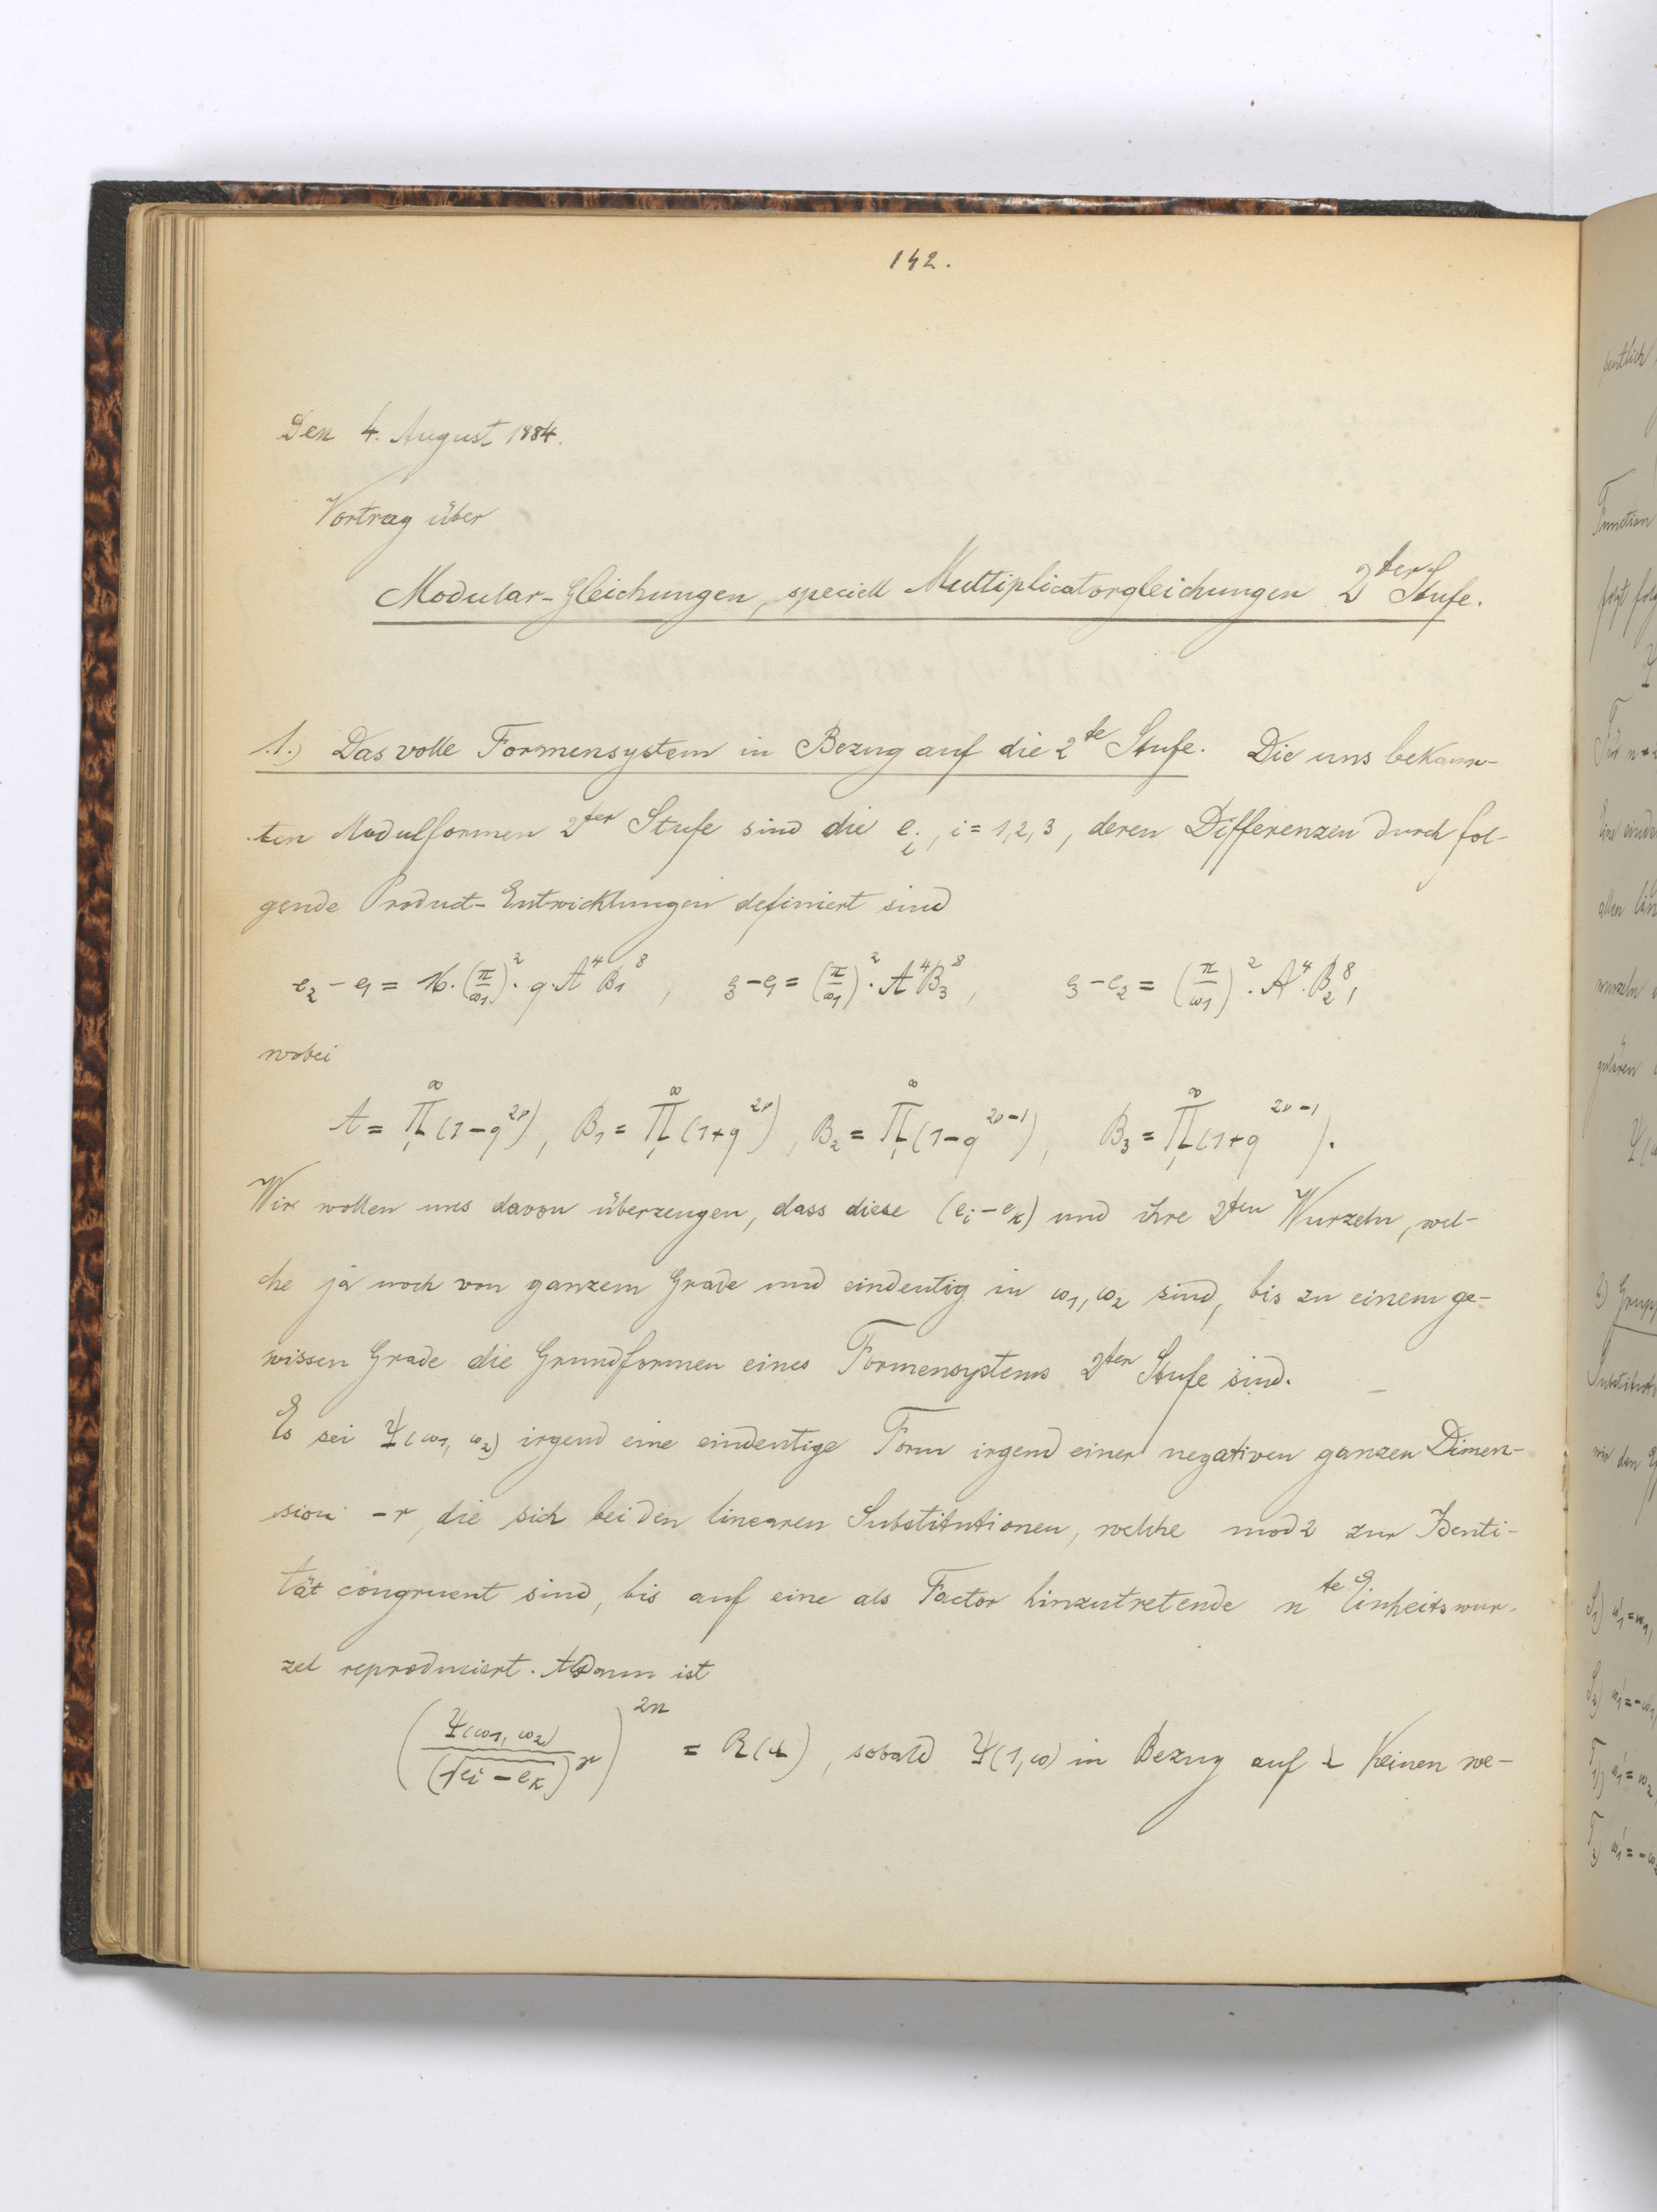 142.
Den 4. August 1884.
Vortrag über
Modular-Gleichungen, speciell Multiplicatorgleichungen 2ter Stufe.
1.) Das volle Formensystem in Bezug auf die 2te Stufe. Die uns bekann-
ten Modulformen 2ter Stufe sind die e_i, i = 1, 2, 3, deren Differenzen durch fol-
gende Product-Entwicklungen definiert sind
e₂ − e₁ = 16·(π/ω₁)²·q·A⁴B₁⁸, e₃ − e₁ = (π/ω₁)²·A⁴B₃⁸, e₃ − e₂ = (π/ω₁)²·A⁴·B₂⁸,
wobei
A = ∏₁^∞ (1−q^{2ν}), B₁ = ∏₁^∞ (1+q^{2ν}), B₂ = ∏₁^∞ (1−q^{2ν−1}), B₃ = ∏₁^∞ (1+q^{2ν−1}).
Wir wollen uns davon überzeugen, dass diese (e_i − e_k) und ihre 2ten Wurzeln, wel-
che ja noch von ganzem Grade und eindeutig in ω₁, ω₂ sind, bis zu einem ge-
wissen Grade die Grundformen eines Formensystems 2ter Stufe sind.
Es sei Ψ(ω₁, ω₂) irgend eine eindeutige Form irgend einer negativen ganzen Dimen-
sion −r, die sich bei den linearen Substitutionen, welche mod 2 zur Identi-
tät congruent sind, bis auf eine als Factor hinzutretende nte Einheitswur-
zel reproduciert. Alsdann ist
(Ψ(ω₁, ω₂) / (√(e_i − e_k))^r)^{2n} = R(λ), sobald Ψ(1, ω) in Bezug auf λ keinen we-